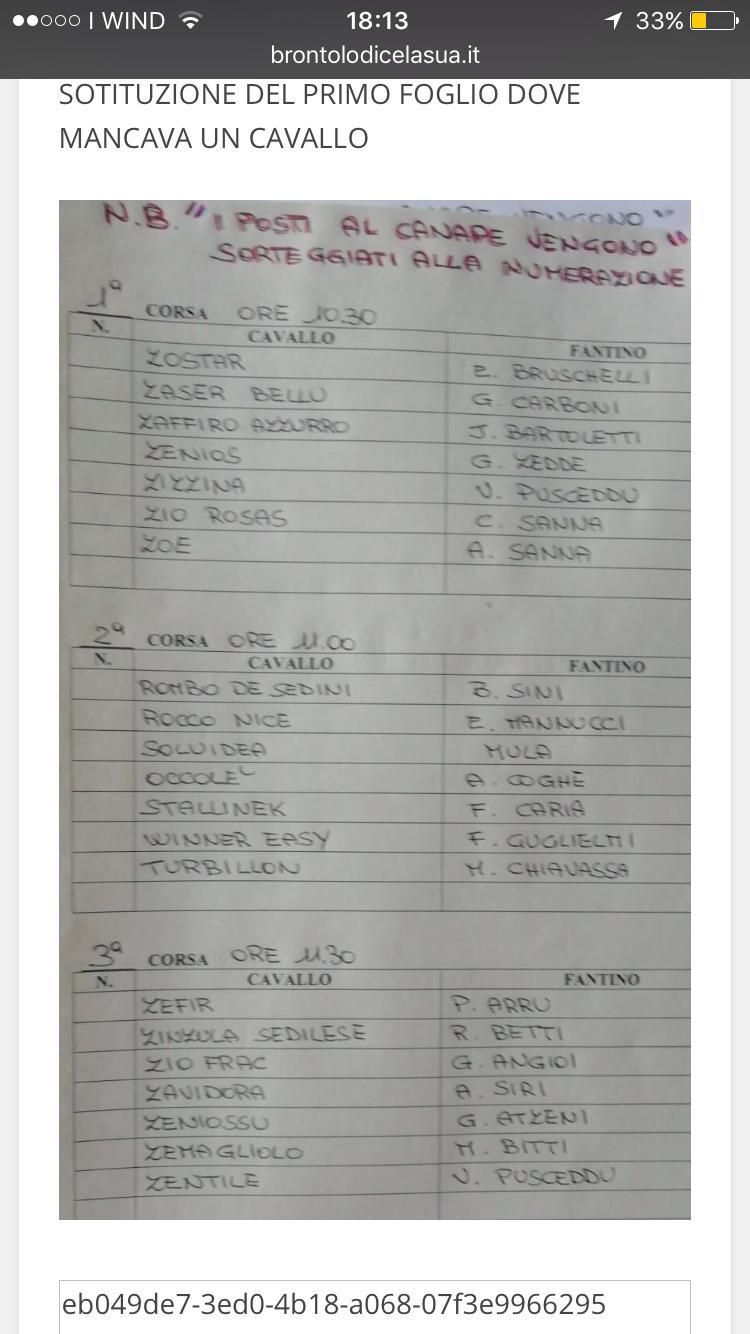 WIND 18:13 33%
brontolodicelasua.it
SOTITUZIONE DEL PRIMO FOGLIO DOVE
MANCAVA UN CAVALLO
N.B. "I POSTI AL CANAPE VENGONO"
SORTEGGIATI ALLA NUMERAZIONE
1ª CORSA ORE 10.30
N. CAVALLO FANTINO
ZOSTAR E. BRUSCHELLI
ZASER BELLU G. CARBONI
ZAFFIRO AZZURRO J. BARTOLETTI
ZENIOS G. ZEDDE
ZIZZINA V. PUSCEDDU
ZIO ROSAS C. SANNA
ZOE A. SANNA
2ª CORSA ORE 11.00
N. CAVALLO FANTINO
ROMBO DE SEDINI B. SINI
ROCCO NICE E. MANNUCCI
SOLUIDEA MULA
OCCOLE A. COGHE
STALLINEK F. CARIA
WINNER EASY F. GUGLIELMI
TURBILLON M. CHIAVASSA
3ª CORSA ORE 11.30
N. CAVALLO FANTINO
ZEFIR P. ARRU
ZINZULA SEDILESE R. BETTI
ZIO FRAC G. ANGIOI
ZAVIDORA A. SIRI
ZENIOSSU G. ATZENI
ZEMAGLIOLO M. BITTI
ZENTILE V. PUSCEDDU
eb049de7-3ed0-4b18-a068-07f3e9966295